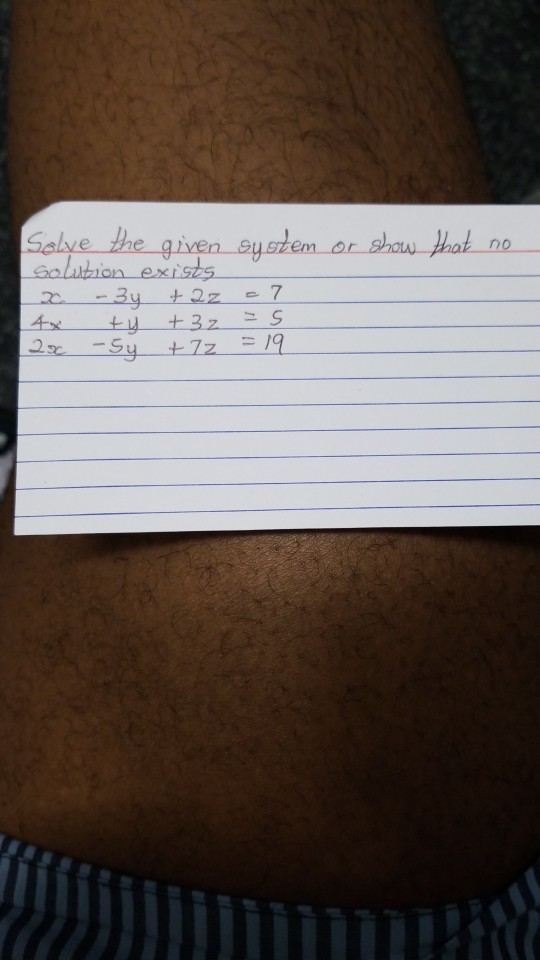 Solve the given system or show that no
solution exists
x - 3y + 2z = 7
4x + y + 3z = 5
2x - 5y + 7z = 19